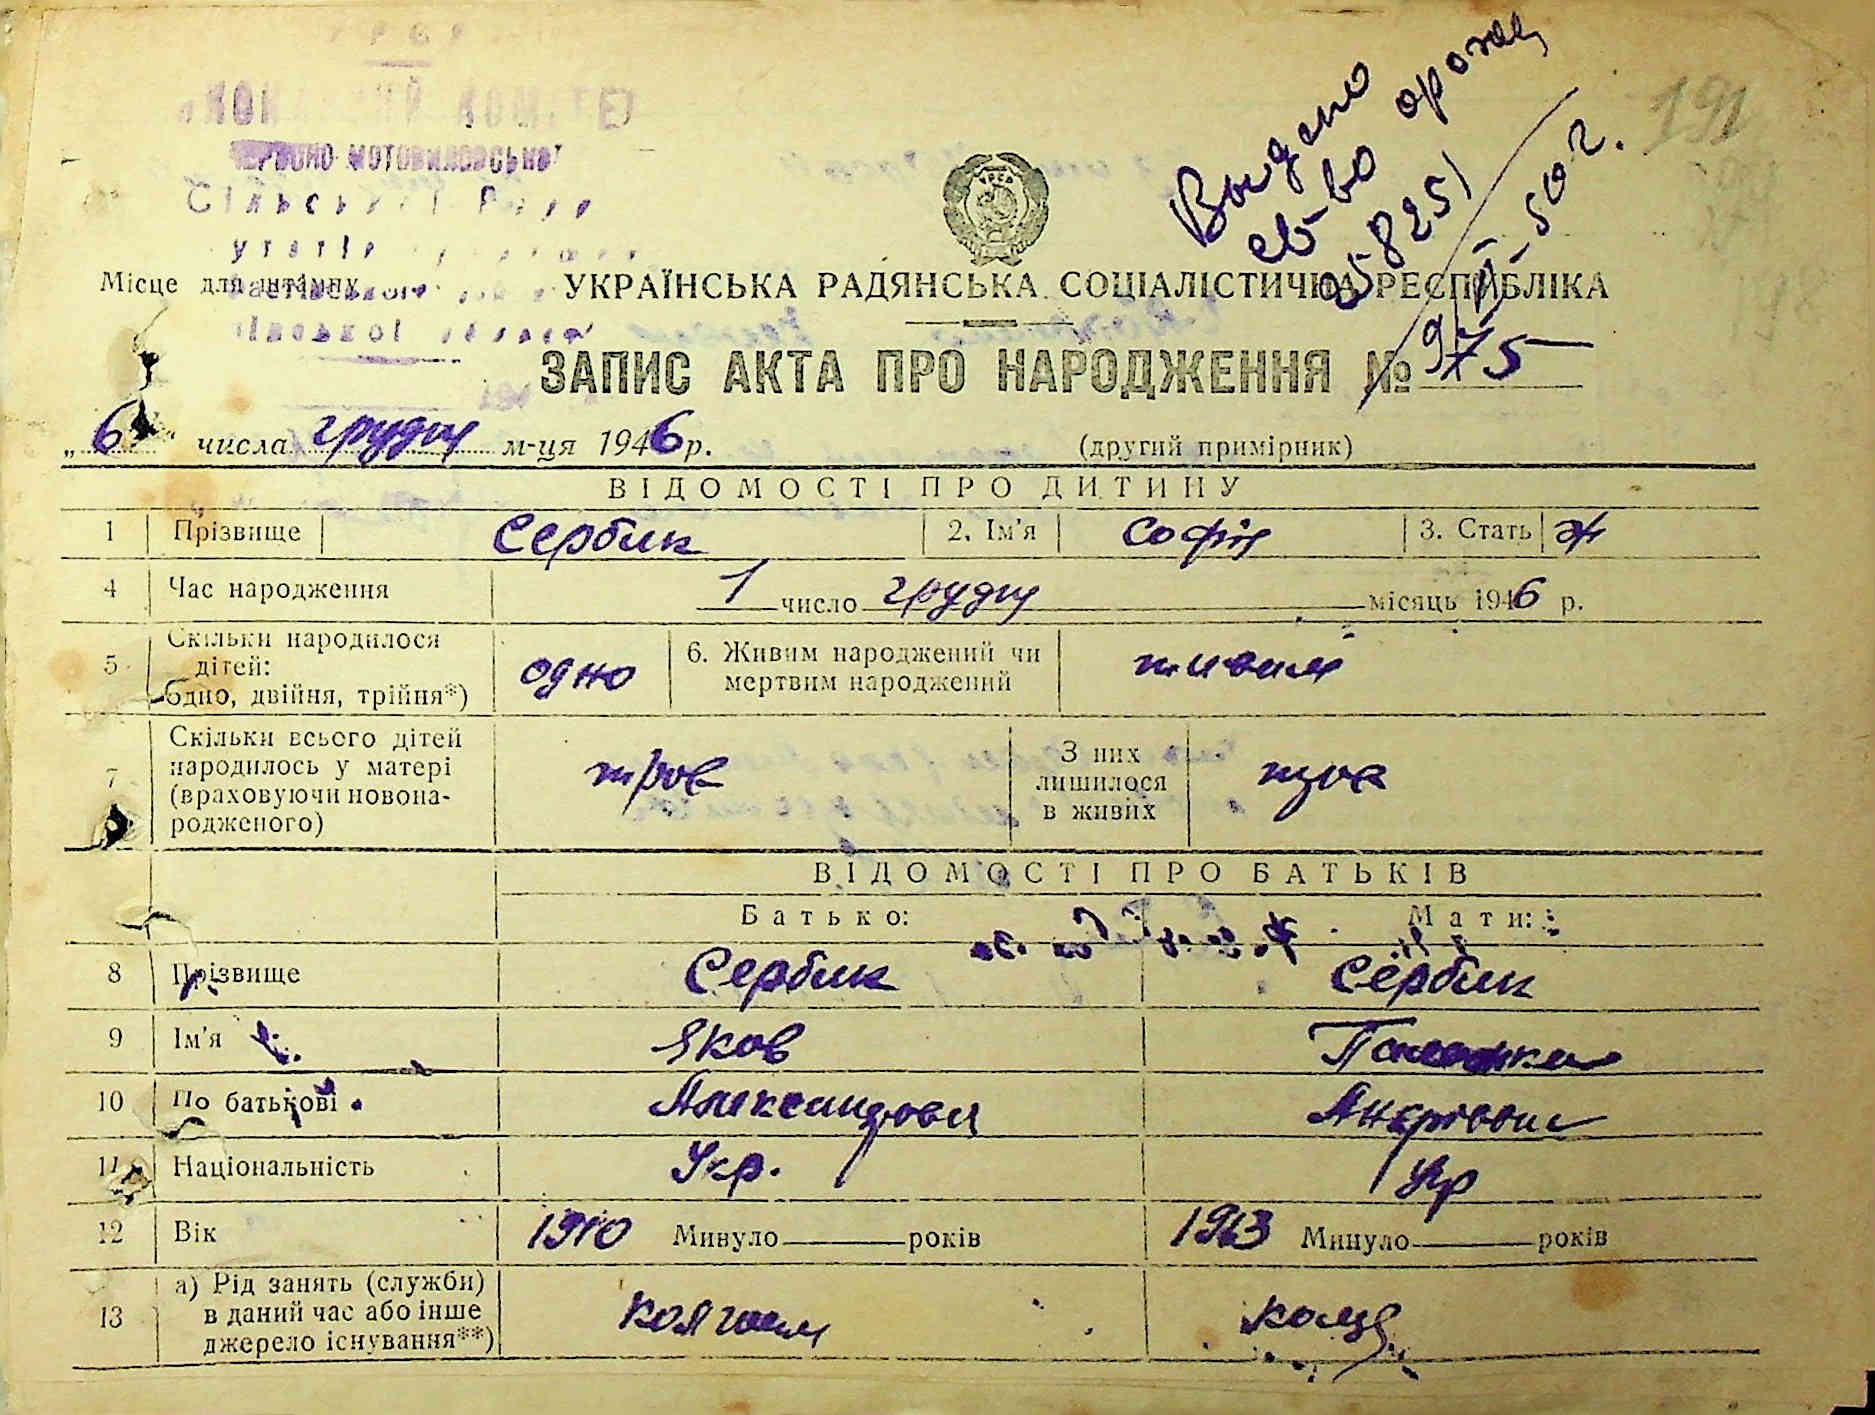 ЧЕРВОНО МОТОВИЛІВСЬКОЇ
Сільської Ради
Місце для штампу
Видано
св-во
058251
9/ІІ-50 г.
191
УКРАЇНСЬКА РАДЯНСЬКА СОЦІАЛІСТИЧНА РЕСПУБЛІКА
ЗАПИС АКТА ПРО НАРОДЖЕННЯ № 75
„6“ числа грудня м-ця 1946 р. (другий примірник)
ВІДОМОСТІ ПРО ДИТИНУ
1 Прізвище Сербик 2. Ім'я Софія 3. Стать ж
4 Час народження 1 число грудня місяць 1946 р.
5 Скільки народилося дітей: одно, двійня, трійня*) одно 6. Живим народжений чи мертвим народжений живим
7 Скільки всього дітей народилось у матері (враховуючи новонародженого) троє З них лишилося в живих троє
ВІДОМОСТІ ПРО БАТЬКІВ
Батько: Мати:
8 Прізвище Сербик Сербик
9 Ім'я Яков
10 По батькові Александрович Андрієвна
11 Національність Укр. Укр
12 Вік 1910 Минуло років 1913 Минуло років
13 а) Рід занять (служби) в даний час або інше джерело існування**) колгосп колгосп